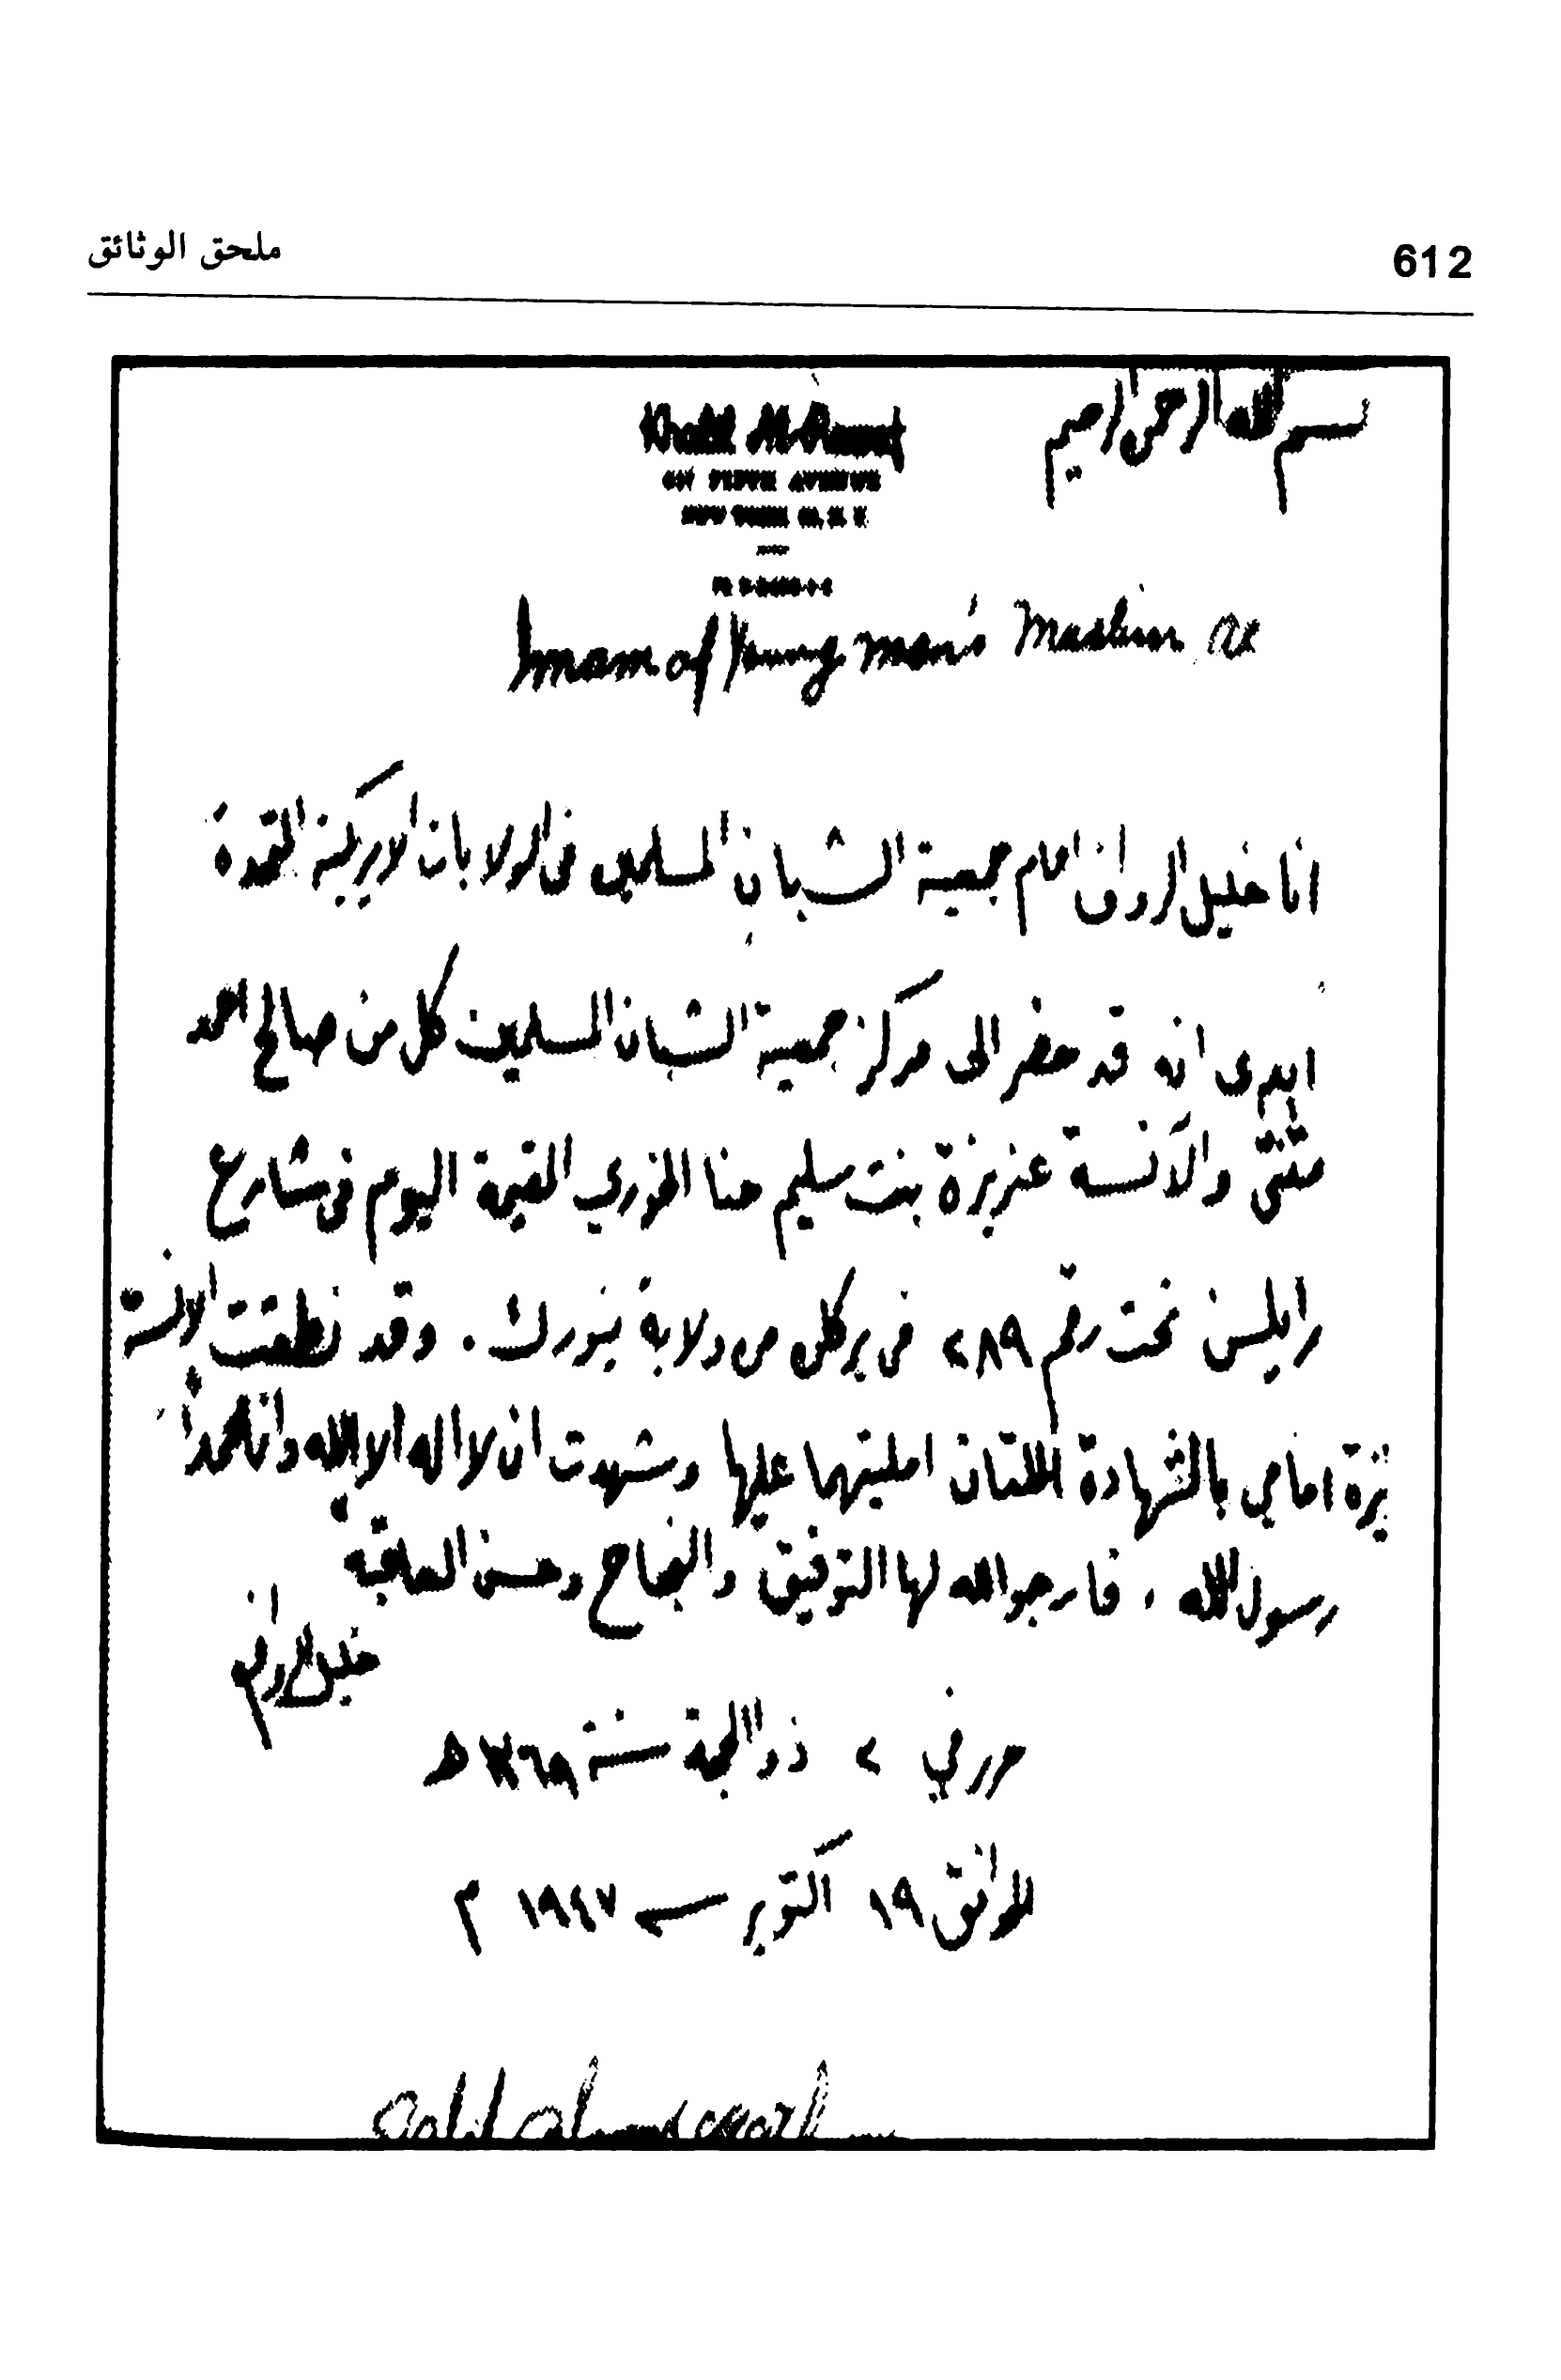 612
ملحق الوثائق
بسم الله الرحمن الرحيم
Khalil Al Rawaf
FIFTH AVENUE
NEW YORK
Imam of Young men's Muslim
انا خليل الرواف امام جمعية الشبان المسلمين فى الولايات الامريكية المتحدة
انه قد حضر الى مركز جمعية الشبان المسلمين كل من صالح احمد
مثنى والآنسة عزيزة بنت سليم حنا الخوري المقيمة اليوم فى شارع
تحت رقم ٢٨٩ فى بركلن من ولاية نيورك . وقد نطقت الانسة
يزة امامي بالشهادة اللتان امليتهما عليها وشهدت ان لا اله الا الله وان محمداً
رسول الله ، فارجو الله لها التوفيق والنجاح وحسن العاقبة
خليل الرواف
حرر في ٤ ذو الحجة سنة ١٣٦٩ هـ
الموافق ١٩ اكتوبر سـ ١٩٤٧ م